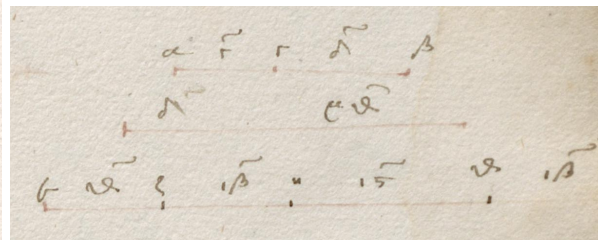 α γ̄ γ δ̄ β
δ̄ μθ̄
ε θ̄ ζ ιβ̄ η ιϛ̄ θ ιβ̄